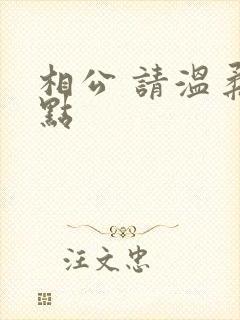 相公 請溫柔
點
汪文忠